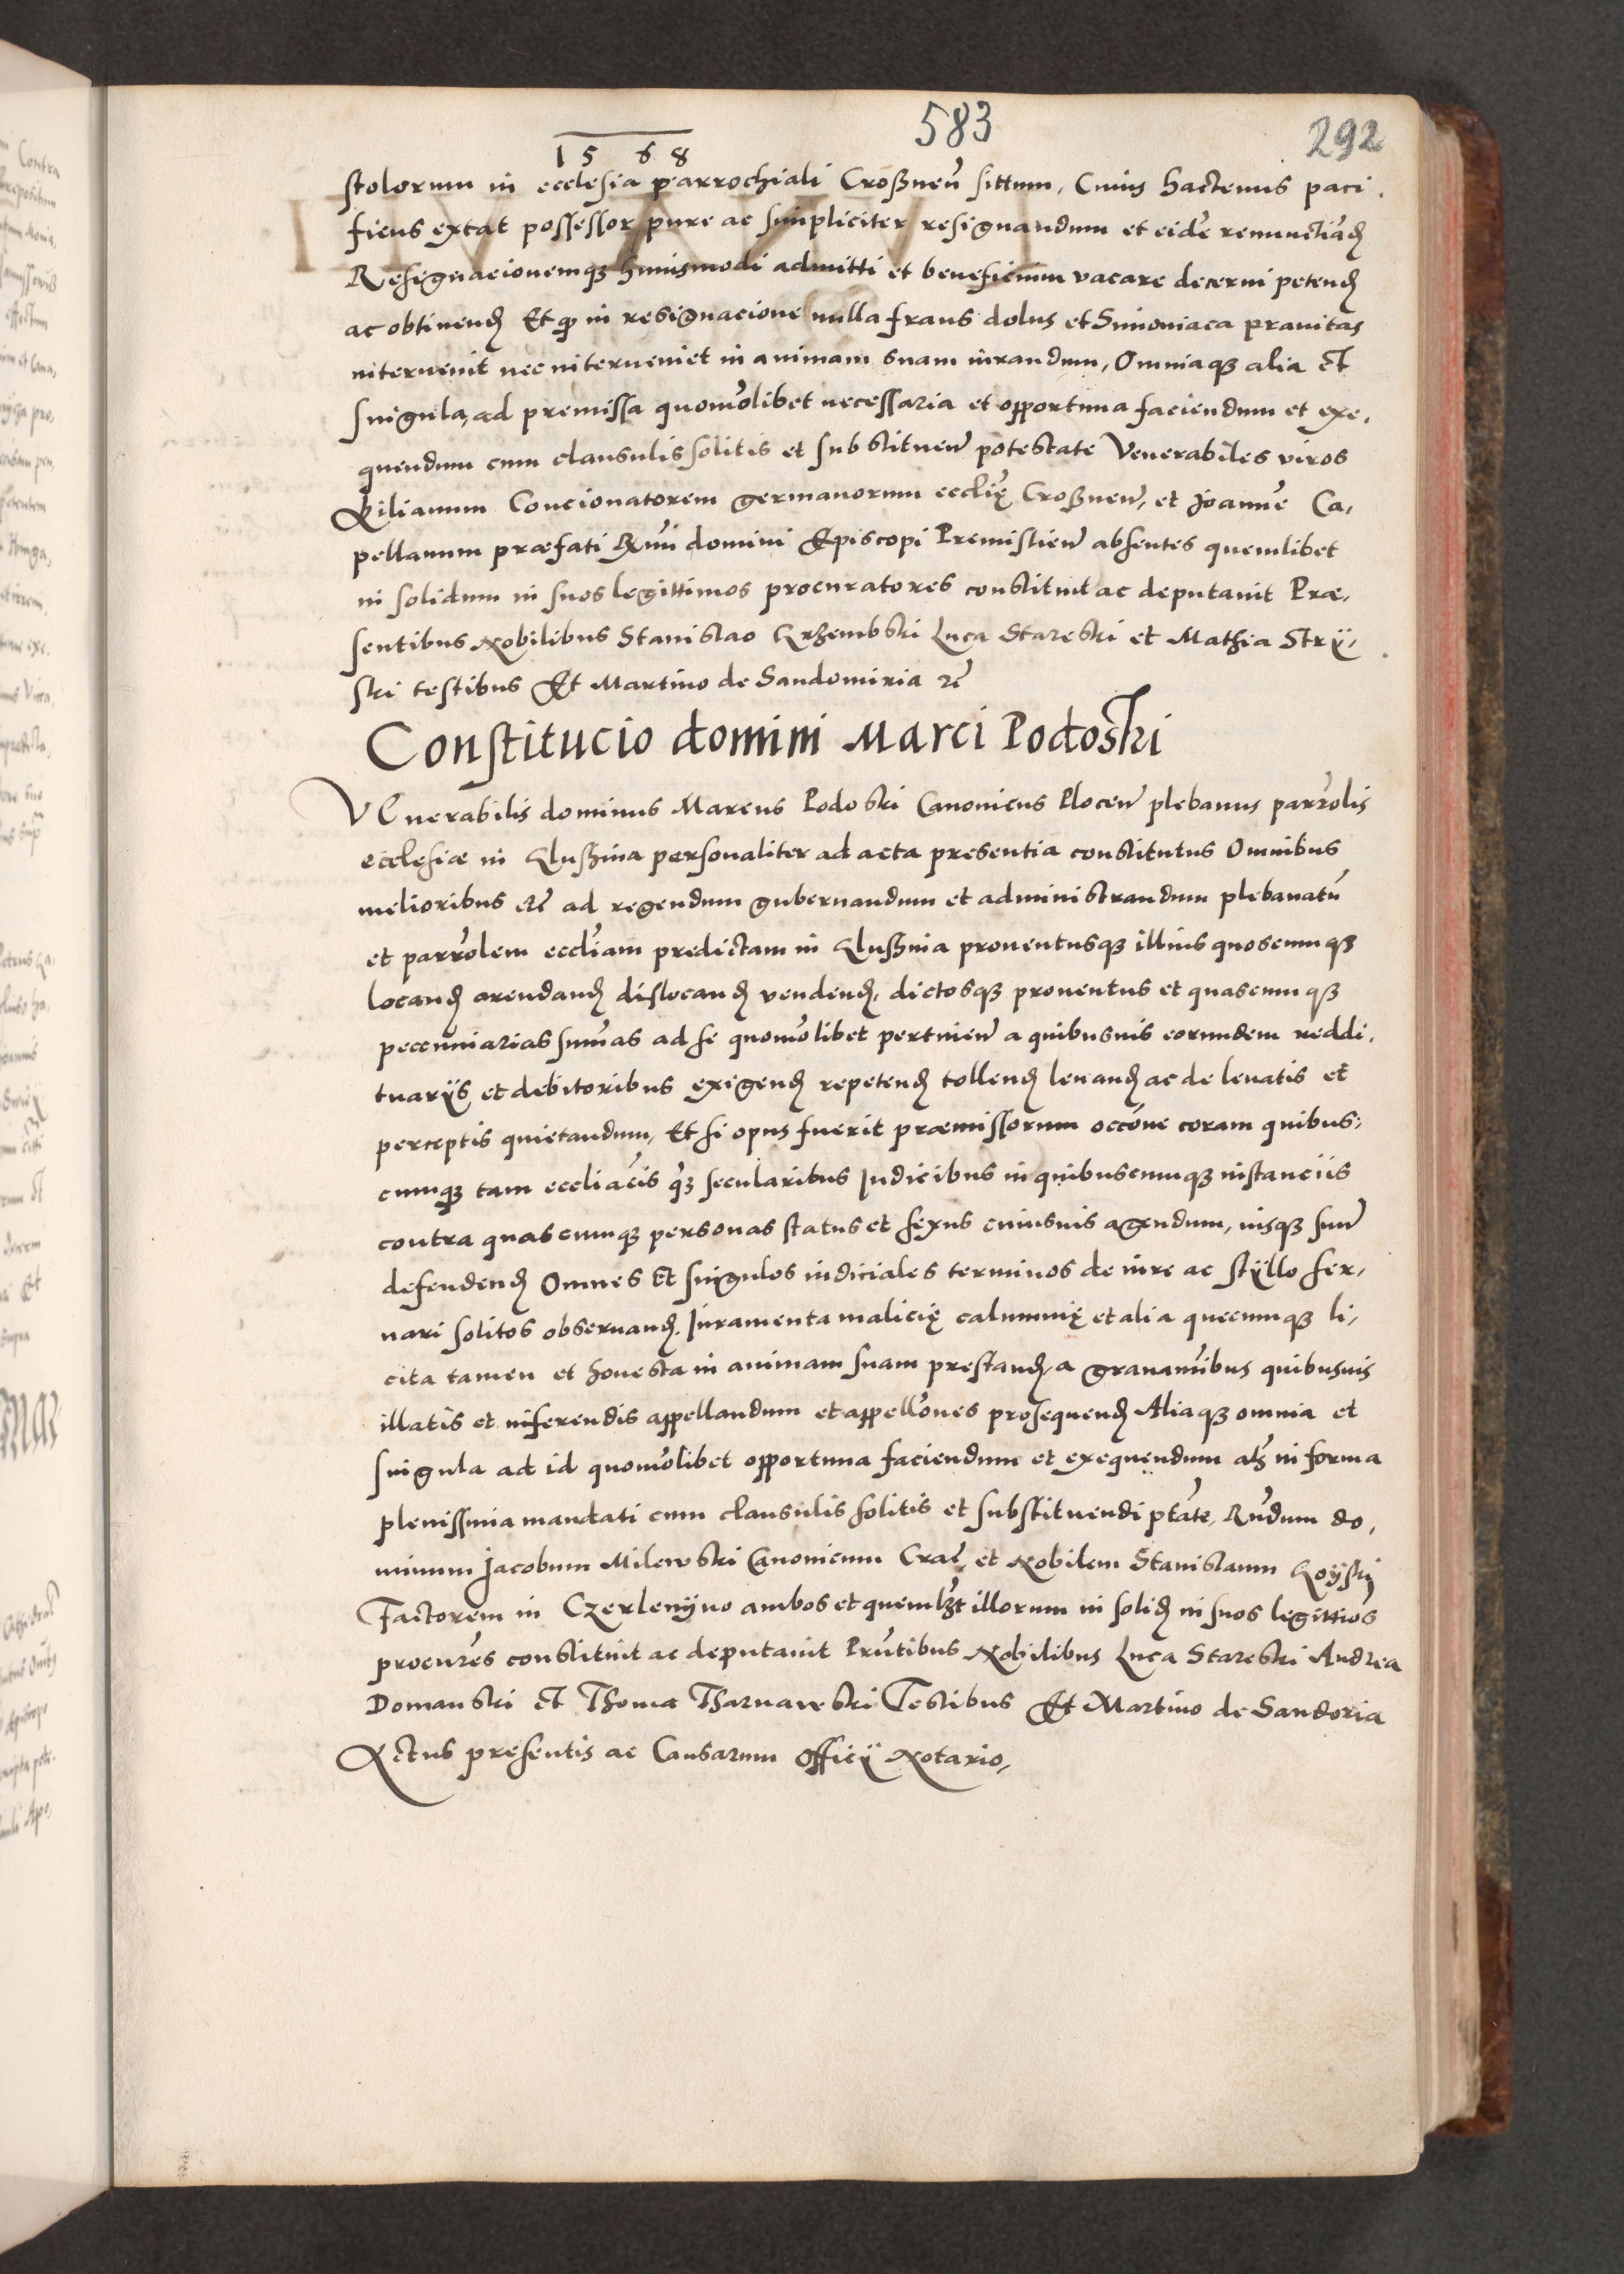 583
292
1568
stolorum in ecclesia parrochiali Croßnen̄ sittum, Cuius hactenus paci.
ficus extat possessor pure ac simpliciter resignandum et eidē renunctiād
Resignacionemq₃ huiusmodi admitti et beneficium vacare decerni petend
ac obtinend Et q̃ in resignacione nulla fraus dolus et Simoniaca prauitas
interuenit nec interueniet in animam suam iurandum, Omniaq₃ alia et
singula, ad premissa quomōlibet necessaria et opportuna faciendum et exe,
quendum cum clausulis solitis et substituen̄ potestate Venerabiles viros
Kilianum Concionatorem germanorum eccl̄ię Croßnen̄, et Joannē Ca,
pellanum præfati R̄mi domini Episcopi Premislien̄ absentes quemlibet
in solidum in suos legittimos procuratores constituit ac deputauit Præ,
sentibus Nobilibus Stanislao Krzembski Luca Starski et Mathia Strÿ,
ski testibus Et Martino de Sandomiria rē
Constitucio domini Marci Podoski
VEnerabilis dominus Marcus Podoski Canonicus Plocen̄ plebanus parrōlis
ecclesiæ in Klussina personaliter ad acta presentia constitutus Omnibus
melioribus etē ad regendum gubernandum et administrandum plebanatū
et parrōlem eccl̄iam predictam in Klussina prouentusq₃ illius quoscumq₃
locand arendand dislocand vendend, dictosq₃ prouentus et quascumq₃
pecunniarias sum̄as ad se quomōlibet pertinen̄ a quibusuis eorundem reddi,
tuarÿs et debitoribus exigend repetend tollend leuand ac de leuatis et
perceptis quietandum, Et si opus fuerit præmissorum occōne coram quibus:
cumq₃ tam eccliācis q̃₃ secularibus Judicibus in quibuscumq₃ instanciis
contra quascumq₃ personas status et sexus cuiusuis agendum, iusq₃ suū
defendend Omnes Et singulos iudiciales terminos de iure ac stÿllo ser,
uari solitos obseruand. Juramenta malicię calumnię et alia quecumq₃ li,
cita tamen et honesta in animam suam prestand, a grauamībus quibusuis
illatis et inferendis appellandum et appellōnes prosequend Aliaq₃ omnia et
singula ad id quomōlibet opportuna faciendum et exequendum al₃ in forma
plenissima mandati cum clausulis solitis et substituendi ptāte, Rn̄dum do,
minum Jacobum Milewski Canonicum Crac̄, et Nobilem Stanislaum Koÿski
Factorem in Czerlenÿno ambos et queml₃t illorum in solid in suos legittīos
procur̄es constituit ac deputauit Prn̄tibus Nobilibus Luca Starski Andrea
Domanski et Thoma Tharnawski Testibus Et Martino de Sandoria
Actus presentis ac Causarum Officÿ Notario,